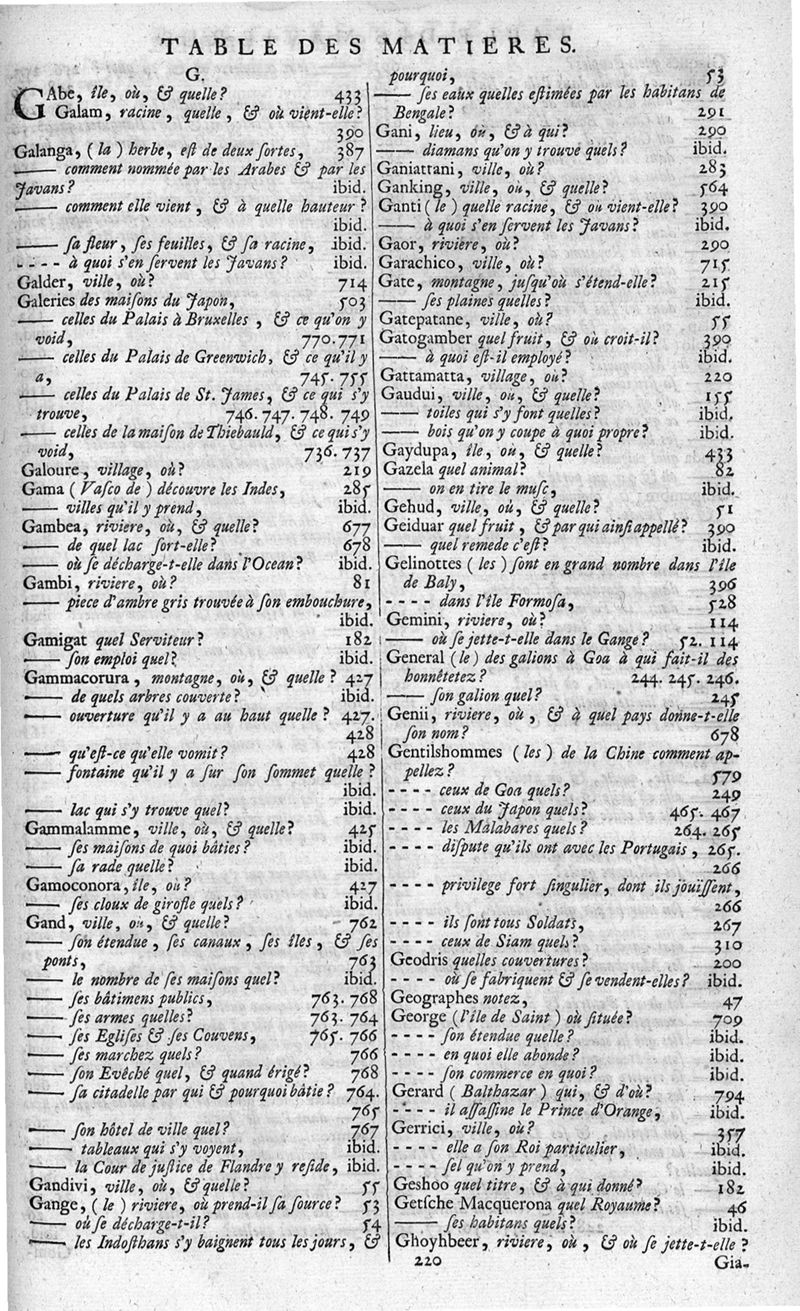 TABLE DES MATIERES.
G.
GAbe, île, où, & quelle? 433
Galam, racine, quelle, & où vient-elle?
390
Galanga, (la) herbe, eſt de deux ſortes, 387
—— comment nommée par les Arabes & par les
Javans? ibid.
—— comment elle vient, & à quelle hauteur?
ibid.
—— ſa fleur, ſes feuilles, & ſa racine, ibid.
---- à quoi s'en ſervent les Javans? ibid.
Galder, ville, où? 714
Galeries des maiſons du Japon, 503
—— celles du Palais à Bruxelles, & ce qu'on y
void, 770. 771
—— celles du Palais de Greenwich, & ce qu'il y
a, 745. 755
—— celles du Palais de St. James, & ce qui s'y
trouve, 746. 747. 748. 749
—— celles de la maiſon de Thiebauld, & ce qui s'y
void, 736. 737
Galoure, village, où? 219
Gama (Vaſco de) découvre les Indes, 285
—— villes qu'il y prend, ibid.
Gambea, riviere, où, & quelle? 677
—— de quel lac ſort-elle? 678
—— où ſe décharge-t-elle dans l'Ocean? ibid.
Gambi, riviere, où? 81
—— piece d'ambre gris trouvée à ſon embouchure,
ibid.
Gamigat quel Serviteur? 182
—— ſon emploi quel? ibid.
Gammacorura, montagne, où, & quelle? 427
—— de quels arbres couverte? ibid.
—— ouverture qu'il y a au haut quelle? 427.
428
—— qu'eſt-ce qu'elle vomit? 428
—— fontaine qu'il y a ſur ſon ſommet quelle?
ibid.
—— lac qui s'y trouve quel? ibid.
Gammalamme, ville, où, & quelle? 425
—— ſes maiſons de quoi bâties? ibid.
—— ſa rade quelle? ibid.
Gamoconora, île, où? 427
—— ſes cloux de girofle quels? ibid.
Gand, ville, où, & quelle? 762
—— ſon étendue, ſes canaux, ſes îles, & ſes
ponts, 763
—— le nombre de ſes maiſons quel? ibid.
—— ſes bâtimens publics, 763. 768
—— ſes armes quelles? 763. 764
—— ſes Egliſes & ſes Couvens, 765. 766
—— ſes marchez quels? 766
—— ſon Evêché quel, & quand érigé? 768
—— ſa citadelle par qui & pourquoi bâtie? 764.
765
—— ſon hôtel de ville quel? 767
—— tableaux qui s'y voyent, ibid.
—— la Cour de juſtice de Flandre y reſide, ibid.
Gandivi, ville, où, & quelle? 55
Gange, (le) riviere, où prend-il ſa ſource? 53
—— où ſe décharge-t-il? 54
—— les Indoſthans s'y baignent tous les jours, &
pourquoi, 53
—— ſes eaux quelles eſtimées par les habitans de
Bengale? 291
Gani, lieu, où, & à qui? 290
—— diamans qu'on y trouve quels? ibid.
Ganiatrani, ville, où? 283
Ganking, ville, où, & quelle? 564
Ganti (le) quelle racine, & où vient-elle? 390
—— à quoi s'en ſervent les Javans? ibid.
Gaor, riviére, où? 290
Garachico, ville, où? 715
Gate, montagne, juſqu'où s'étend-elle? 215
—— ſes plaines quelles? ibid.
Gatepatane, ville, où? 55
Gatogamber quel fruit, & où croit-il? 390
—— à quoi eſt-il employé? ibid.
Gattamatta, village, où? 220
Gaudui, ville, où, & quelle? 155
—— toiles qui s'y font quelles? ibid.
—— bois qu'on y coupe à quoi propre? ibid.
Gaydupa, île, où, & quelle? 433
Gazela quel animal? 82
—— on en tire le muſc, ibid.
Gehud, ville, où, & quelle? 51
Geiduar quel fruit, & par qui ainſi appellé? 390
—— quel remede c'eſt? ibid.
Gelinottes (les) ſont en grand nombre dans l'île
de Baly, 396
---- dans l'île Formoſa, 528
Gemini, riviere, où? 114
—— où ſe jette-t-elle dans le Gange? 52. 114
General (le) des galions à Goa à qui fait-il des
honnêtetez? 244. 245. 246.
—— ſon galion quel? 245
Genii, riviere, où, & à quel pays donne-t-elle
ſon nom? 678
Gentilshommes (les) de la Chine comment ap-
pellez? 579
---- ceux de Goa quels? 249
---- ceux du Japon quels? 465. 467
---- les Malabares quels? 264. 265
---- diſpute qu'ils ont avec les Portugais, 265.
266
---- privilege fort ſingulier, dont ils jouïſſent,
266
---- ils ſont tous Soldats, 267
---- ceux de Siam quels? 310
Geodris quelles couvertures? 200
---- où ſe fabriquent & ſe vendent-elles? ibid.
Geographes notez, 47
George (l'île de Saint) où ſituée? 709
---- ſon étendue quelle? ibid.
---- en quoi elle abonde? ibid.
---- ſon commerce en quoi? ibid.
Gerard (Balthazar) qui, & d'où? 794
---- il aſſaſſine le Prince d'Orange, ibid.
Gerrici, ville, où? 357
---- elle a ſon Roi particulier, ibid.
---- ſel qu'on y prend, ibid.
Geshoo quel titre, & à qui donné? 182
Getſche Macquerona quel Royaume? 46
—— ſes habitans quels? ibid.
Ghoyhbeer, riviere, où, & où ſe jette-t-elle?
220 Gia-